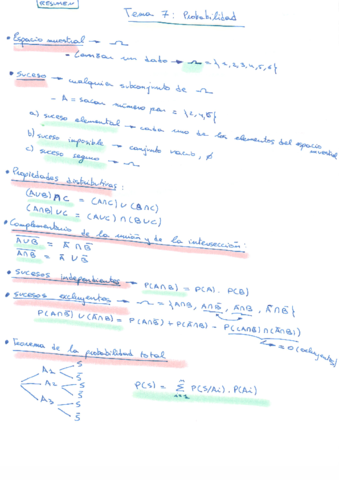 RESUMEN
Tema 7: Probabilidad
• Espacio muestral → Ω
- Lanzar un dato → Ω = {1,2,3,4,5,6}
• Suceso → cualquier subconjunto de Ω
- A = sacar número par =
a) suceso elemental → cada uno de los elementos del espacio muestral
b) suceso imposible → conjunto vacío, ∅
c) suceso seguro → Ω
• Propiedades distributivas:
(A∪B)∩C = (A∩C) ∪ (B∩C)
(A∩B)∪C = (A∪C) ∩ (B∪C)
• Complementario de la unión y de la intersección:
A̅∪̅B̅ = A̅ ∩ B̅
A̅∩̅B̅ = A̅ ∪ B̅
• Sucesos independientes → P(A∩B) = P(A) · P(B)
• Sucesos excluyentes → Ω = {A∩B, A∩B̅, A̅∩B, A̅∩B̅}
P(A∩B̅) ∪ (A̅∩B) = P(A∩B̅) + P(A̅∩B) - P((A∩B̅)∩(A̅∩B))
= 0 (excluyentes)
• Teorema de la probabilidad total
A₁
S
S̅
A₂
S
S̅
A₃
S
S̅
P(S) = Σ P(S/Ai) · P(Ai)